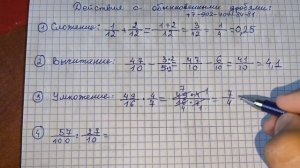 Действия с обыкновенными дробями:
+7-902-404-84-81
① Сложение: 1/12 + 2/12 = 1+2/12 = 3/12 = 1/4 = 0,25
② Вычитание: 47/10 - 3·2/5·2 = 47/10 - 6/10 = 41/10 = 4,1
③ Умножение: 49/16 · 4/7 = 49·4/16·7 = 7/4
④ 57/100 : 27/10 =